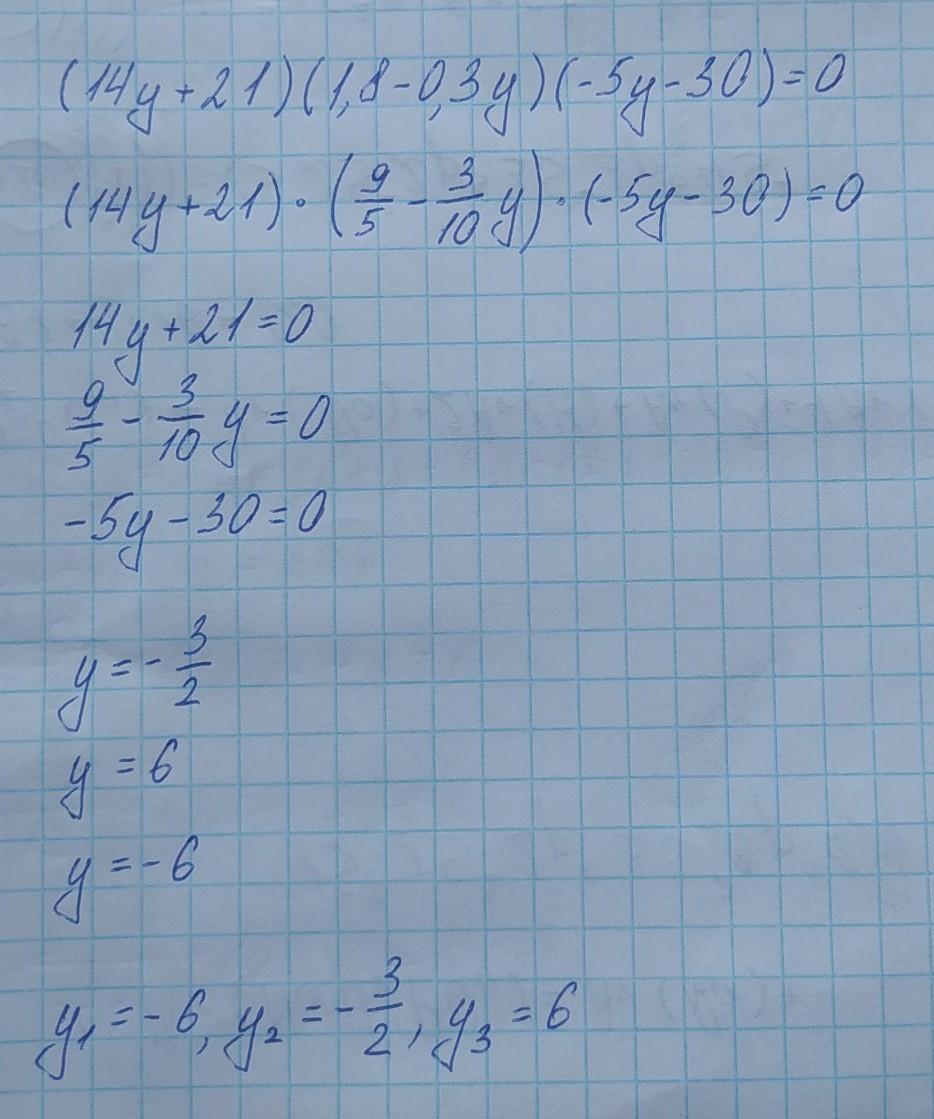 (14y+21)(1,8-0,3y)(-5y-30)=0
(14y+21)·(9/5-3/10y)·(-5y-30)=0
14y+21=0
9/5-3/10y=0
-5y-30=0
y=-3/2
y=6
y=-6
y₁=-6, y₂=-3/2, y₃=6